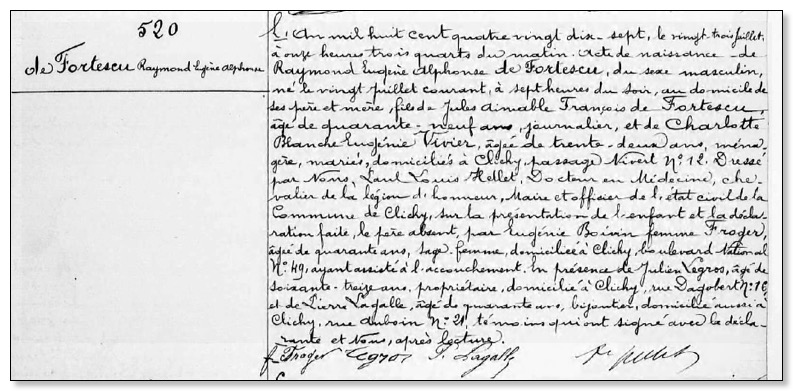 520
de Fortescu Raymond Eugène Alphonse
L'An mil huit cent quatre vingt dix-sept, le vingt-trois juillet,
à onze heures trois quarts du matin. Acte de naissance de
Raymond Eugène Alphonse de Fortescu, du sexe masculin,
né le vingt juillet courant, à sept heures du soir, au domicile de
ses père et mère, fils de Jules Aimable François de Fortescu,
âgé de quarante-neuf ans, journalier, et de Charlotte
Blanche Eugénie Vivier, âgée de trente-deux ans, ména-
gère, mariés, domiciliés à Clichy, passage Nivert N° 12. Dressé
par Nous, Paul Louis Hellet, Docteur en Médecine, che-
valier de la légion d'honneur, Maire et officier de l'état civil de la
Commune de Clichy, sur la présentation de l'enfant et la décla-
ration faite, le père absent, par Eugénie Boivin femme Froger,
âgée de quarante ans, sage-femme, domiciliée à Clichy, boulevard National
N° 49, ayant assisté à l'accouchement. En présence de Julien Legros, âgé de
soixante-treize ans, propriétaire, domicilié à Clichy, rue Dagobert N° 16
et de Pierre Lagalle, âgé de quarante ans, bijoutier, domicilié aussi à
Clichy, rue du bois N° 21, témoins qui ont signé avec la décla-
rante et Nous, après lecture.
f. Froger Legros P. Lagalle